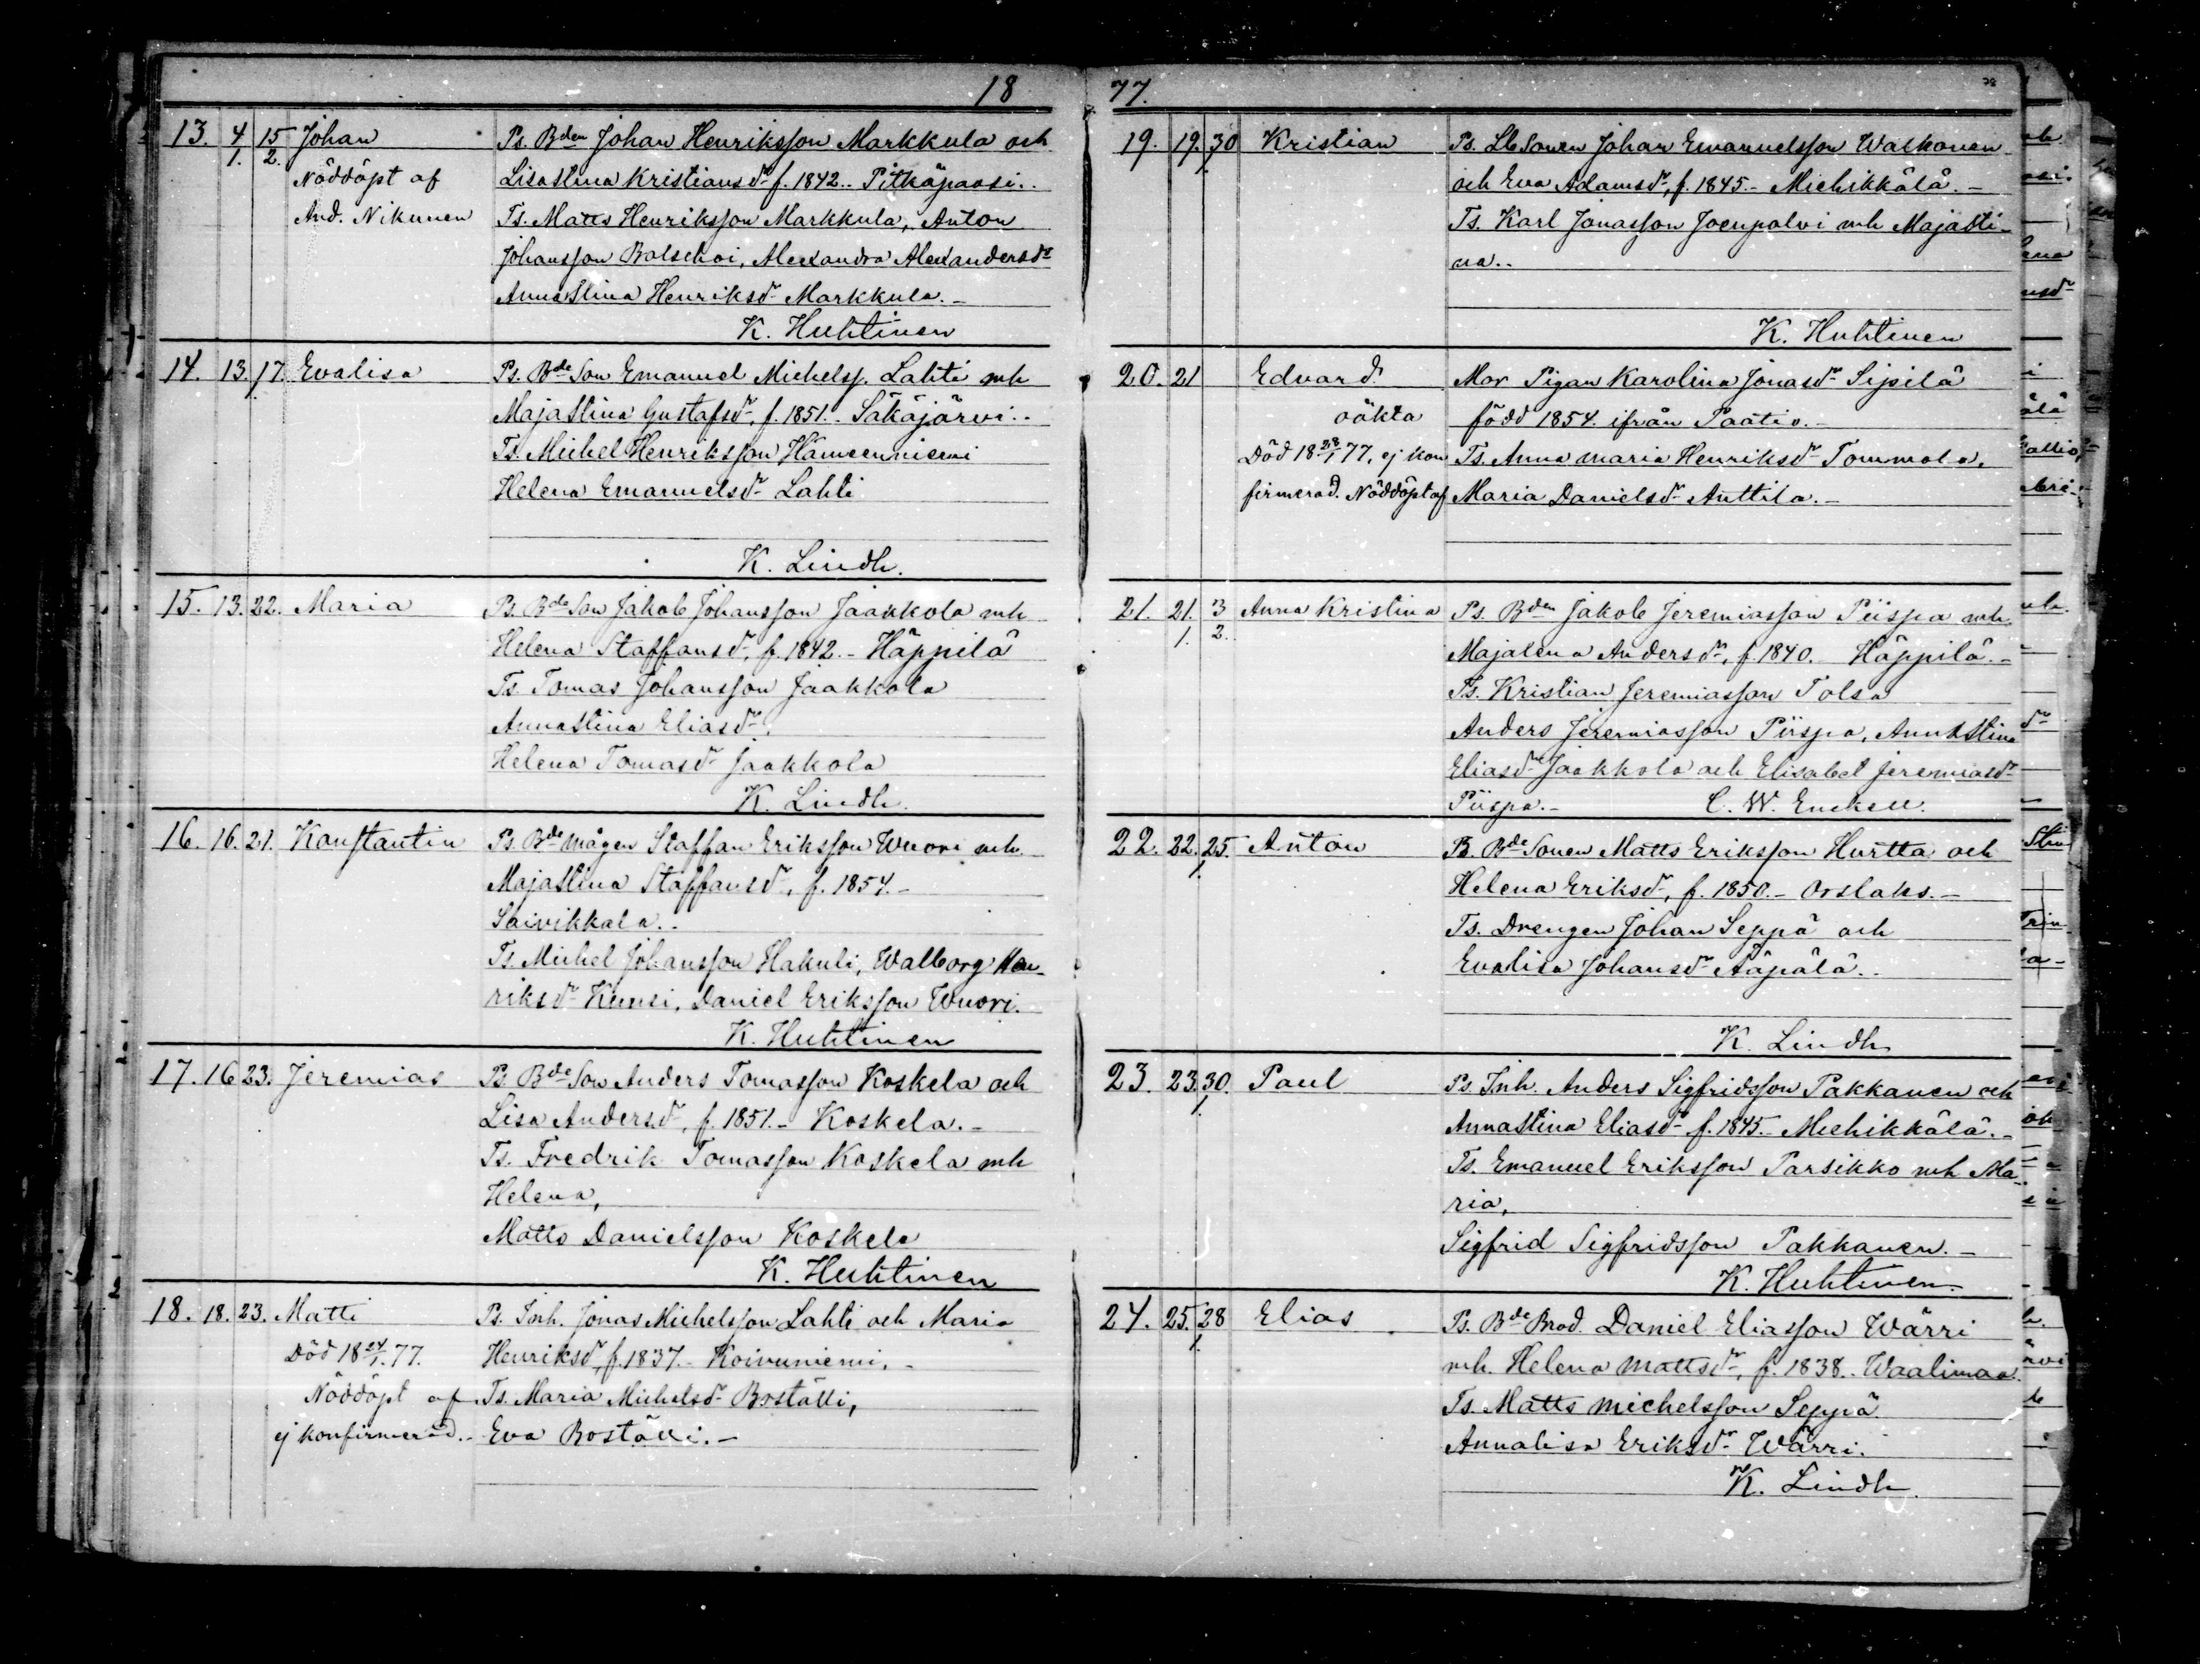 18 77.
13. 4/1. 15/2. Johan Ps. Bden Johan Henriksson Markkula och
Nöddöpt af Lisastina Kristiansdr f. 1842. Pitkäpaasi.
And. Nikunen Ts. Matts Henriksson Markkula, Anton
Johansson Balschoi, Alexandra Alexandersdr
Annastina Henriksdr Markkula.
K. Huhtinen
14. 13. 17. Evalisa Ps. Bde Son Emanuel Michelss. Lahti mh
Majastina Gustafsdr, f. 1851. Säkäjärvi.
Ts. Michel Henriksson Hämeenniemi
Helena Emanuelsdr Lahti
K. Lindh.
15. 13. 22. Maria Ps. Bde Son Jakob Johansson Jaakkola mh
Helena Staffansdr, f. 1842. - Häppilä
Ts. Tomas Johansson Jaakkola
Annastina Eliasdr.
Helena Tomasdr Jaakkola
K. Lindh.
16. 16. 21. Konstantin Ps. Bde mågen Staffan Eriksson Wuori mh
Majastina Staffansdr, f. 1854. -
Saivikkala.
Ts. Michel Johansson Hakuli, Walborg Hen-
riksdr Kunsi, Daniel Eriksson Wuori.
K. Huhtinen
17. 16 23. Jeremias Ps. Bde Son Anders Tomasson Koskela och
Lisa Andersdr, f. 1851. - Koskela. -
Ts. Fredrik Tomasson Koskela mh
Helena,
Matts Danielsson Koskela
K. Huhtinen
18. 18. 23. Matti Ps. Inh. Jonas Michelsson Lahti och Maria
Död 18 24/1. 77. Henriksdr, f. 1837. - Koivuniemi. -
Nöddöpt af Ts. Maria Michelsdr Boställi,
ej konfirmerad. - Eva Boställi. -
19. 19. 30 Kristian Ps. Lb Sonen Johan Emanuelsson Walkonen
1. och Eva Adamsdr, f. 1845. - Miehikkälä. -
Ts. Karl Jonasson Joenpolvi mh Majasti-
na.
K. Huhtinen
20. 21 Edvard Mor Pigan Karolina Jonasdr Sipilä
oäkta född 1854. ifrån Paatio. -
Död 18 28/1 77, ej kon Ts. Anna Maria Henriksdr Tommola,
firmerad. Nöddöpt af Maria Danielsdr Anttila. -
21. 21/1. 3/2. Anna Kristina Ps. Bden Jakob Jeremiasson Piispa mh
Majalena Andersdr, f. 1840. Häppilä. -
Ts. Kristian Jeremiasson Tolsa
Anders Jeremiasson Piispa, Annastina
Eliasdr Jaakkola och Elisabet Jeremiasdr
Piispa. - C. W. Enckell.
22. 22. 25. Anton Ps. Bde Sonen Matts Eriksson Hurtta och
1. Helena Eriksdr, f. 1850. - Orslaks. -
Ts. Drengen Johan Seppä och
Evalisa Johansdr Ääpälä.
K. Lindh
23. 23. 30. Paul Ps. Inh. Anders Sigfridsson Pakkanen och
1. Annastina Eliasdr f. 1845. - Miehikkälä. -
Ts. Emanuel Eriksson Parsikko mh Ma-
ria,
Sigfrid Sigfridsson Pakkanen. -
K. Huhtinen.
24. 25. 28 Elias Ps. Bde Brod. Daniel Eliasson Wärri
1. mh. Helena Mattsdr, f. 1838. Waalimaa.
Ts. Matts Michelsson Seppä
Annalisa Eriksdr Wärri.
K. Lindh.